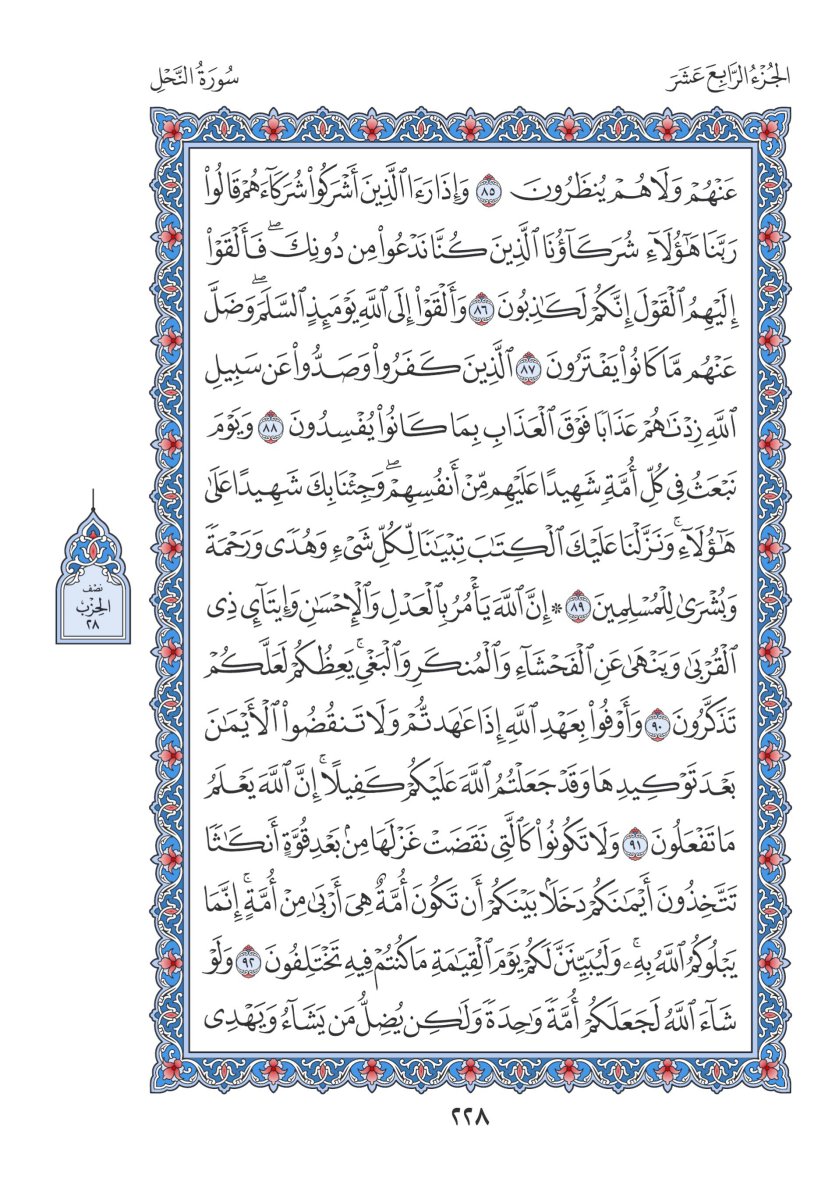 الجُزْءُ الرَّابِعَ عَشَرَ
سُورَةُ النَّحْلِ
عَنْهُمْ وَلَا هُمْ يُنظَرُونَ ٨٥ وَإِذَا رَءَا ٱلَّذِينَ أَشْرَكُوا۟ شُرَكَآءَهُمْ قَالُوا۟
رَبَّنَا هَٰٓؤُلَآءِ شُرَكَآؤُنَا ٱلَّذِينَ كُنَّا نَدْعُوا۟ مِن دُونِكَ ۖ فَأَلْقَوْا۟
إِلَيْهِمُ ٱلْقَوْلَ إِنَّكُمْ لَكَٰذِبُونَ ٨٦ وَأَلْقَوْا۟ إِلَى ٱللَّهِ يَوْمَئِذٍ ٱلسَّلَمَ ۖ وَضَلَّ
عَنْهُم مَّا كَانُوا۟ يَفْتَرُونَ ٨٧ ٱلَّذِينَ كَفَرُوا۟ وَصَدُّوا۟ عَن سَبِيلِ
ٱللَّهِ زِدْنَٰهُمْ عَذَابًا فَوْقَ ٱلْعَذَابِ بِمَا كَانُوا۟ يُفْسِدُونَ ٨٨ وَيَوْمَ
نَبْعَثُ فِى كُلِّ أُمَّةٍ شَهِيدًا عَلَيْهِم مِّنْ أَنفُسِهِمْ ۖ وَجِئْنَا بِكَ شَهِيدًا عَلَىٰ
هَٰٓؤُلَآءِ ۚ وَنَزَّلْنَا عَلَيْكَ ٱلْكِتَٰبَ تِبْيَٰنًا لِّكُلِّ شَىْءٍ وَهُدًى وَرَحْمَةً
وَبُشْرَىٰ لِلْمُسْلِمِينَ ٨٩ ۞ إِنَّ ٱللَّهَ يَأْمُرُ بِٱلْعَدْلِ وَٱلْإِحْسَٰنِ وَإِيتَآئِ ذِى
ٱلْقُرْبَىٰ وَيَنْهَىٰ عَنِ ٱلْفَحْشَآءِ وَٱلْمُنكَرِ وَٱلْبَغْىِ ۚ يَعِظُكُمْ لَعَلَّكُمْ
تَذَكَّرُونَ ٩٠ وَأَوْفُوا۟ بِعَهْدِ ٱللَّهِ إِذَا عَٰهَدتُّمْ وَلَا تَنقُضُوا۟ ٱلْأَيْمَٰنَ
بَعْدَ تَوْكِيدِهَا وَقَدْ جَعَلْتُمُ ٱللَّهَ عَلَيْكُمْ كَفِيلًا ۚ إِنَّ ٱللَّهَ يَعْلَمُ
مَا تَفْعَلُونَ ٩١ وَلَا تَكُونُوا۟ كَٱلَّتِى نَقَضَتْ غَزْلَهَا مِنۢ بَعْدِ قُوَّةٍ أَنكَٰثًا
تَتَّخِذُونَ أَيْمَٰنَكُمْ دَخَلًۢا بَيْنَكُمْ أَن تَكُونَ أُمَّةٌ هِىَ أَرْبَىٰ مِنْ أُمَّةٍ ۚ إِنَّمَا
يَبْلُوكُمُ ٱللَّهُ بِهِۦ ۚ وَلَيُبَيِّنَنَّ لَكُمْ يَوْمَ ٱلْقِيَٰمَةِ مَا كُنتُمْ فِيهِ تَخْتَلِفُونَ ٩٢ وَلَوْ
شَآءَ ٱللَّهُ لَجَعَلَكُمْ أُمَّةً وَٰحِدَةً وَلَٰكِن يُضِلُّ مَن يَشَآءُ وَيَهْدِى
نصْف
الحِزْبُ
٢٨
٢٢٨